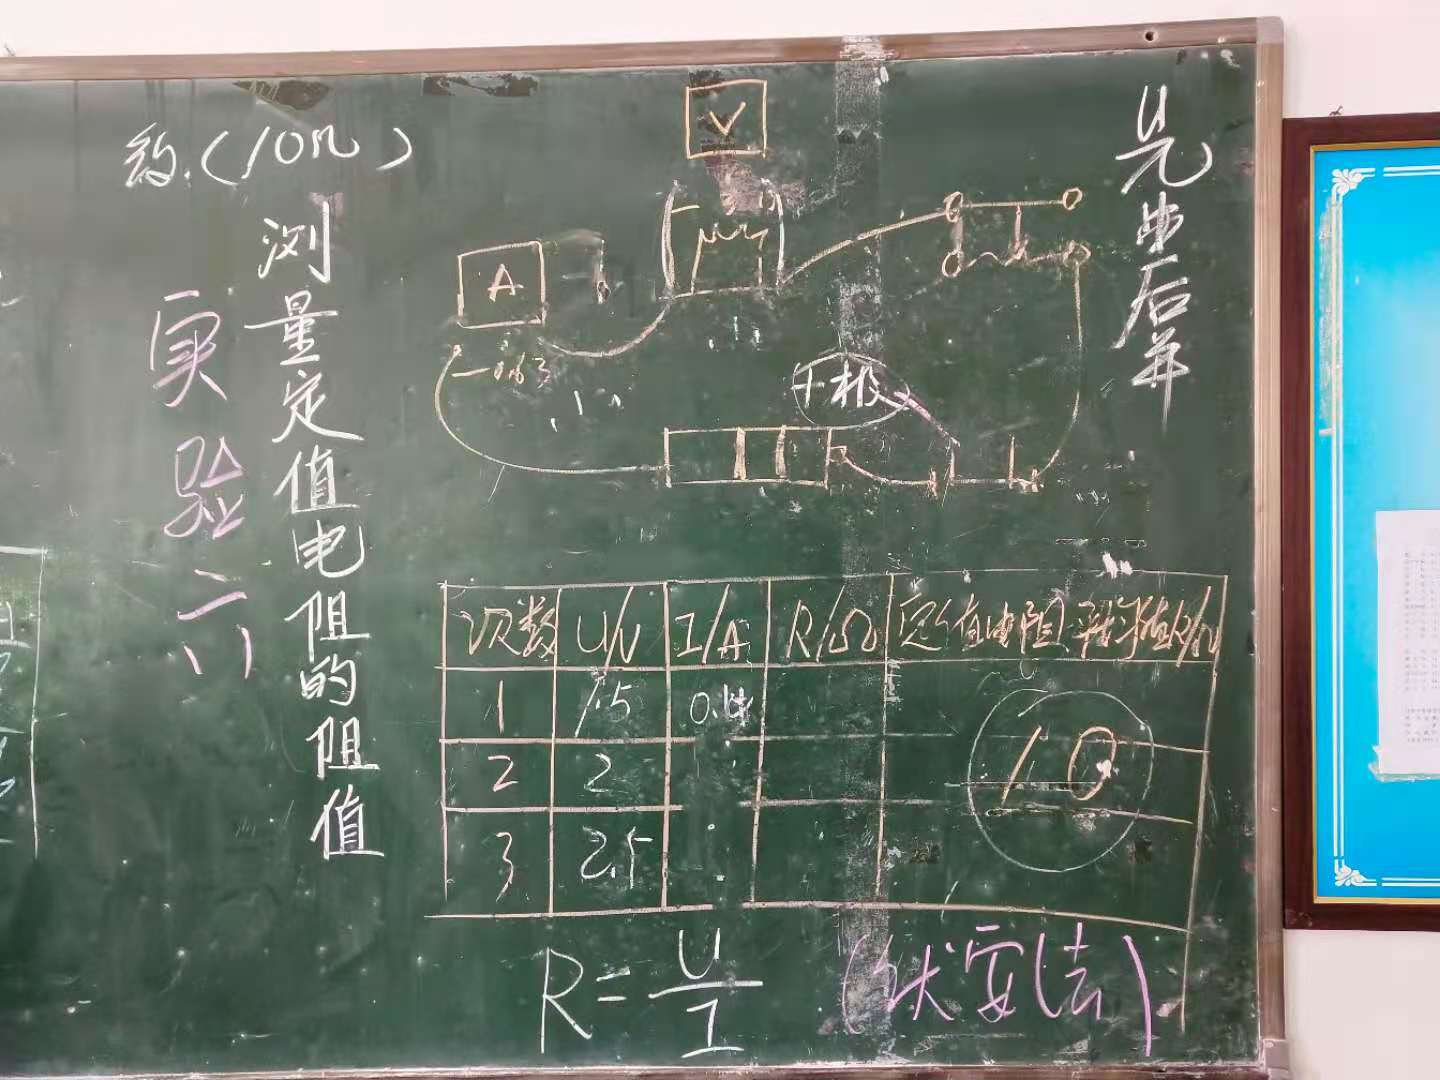 约(10Ω)
实验六
测量定值电阻的阻值
V
A
- 0.6 3
干极
先串后并
次数 U/V I/A R/Ω 定值电阻平均值R/Ω
1 1.5 0.14
2 2
3 2.5
10
R=U/I (伏安法)